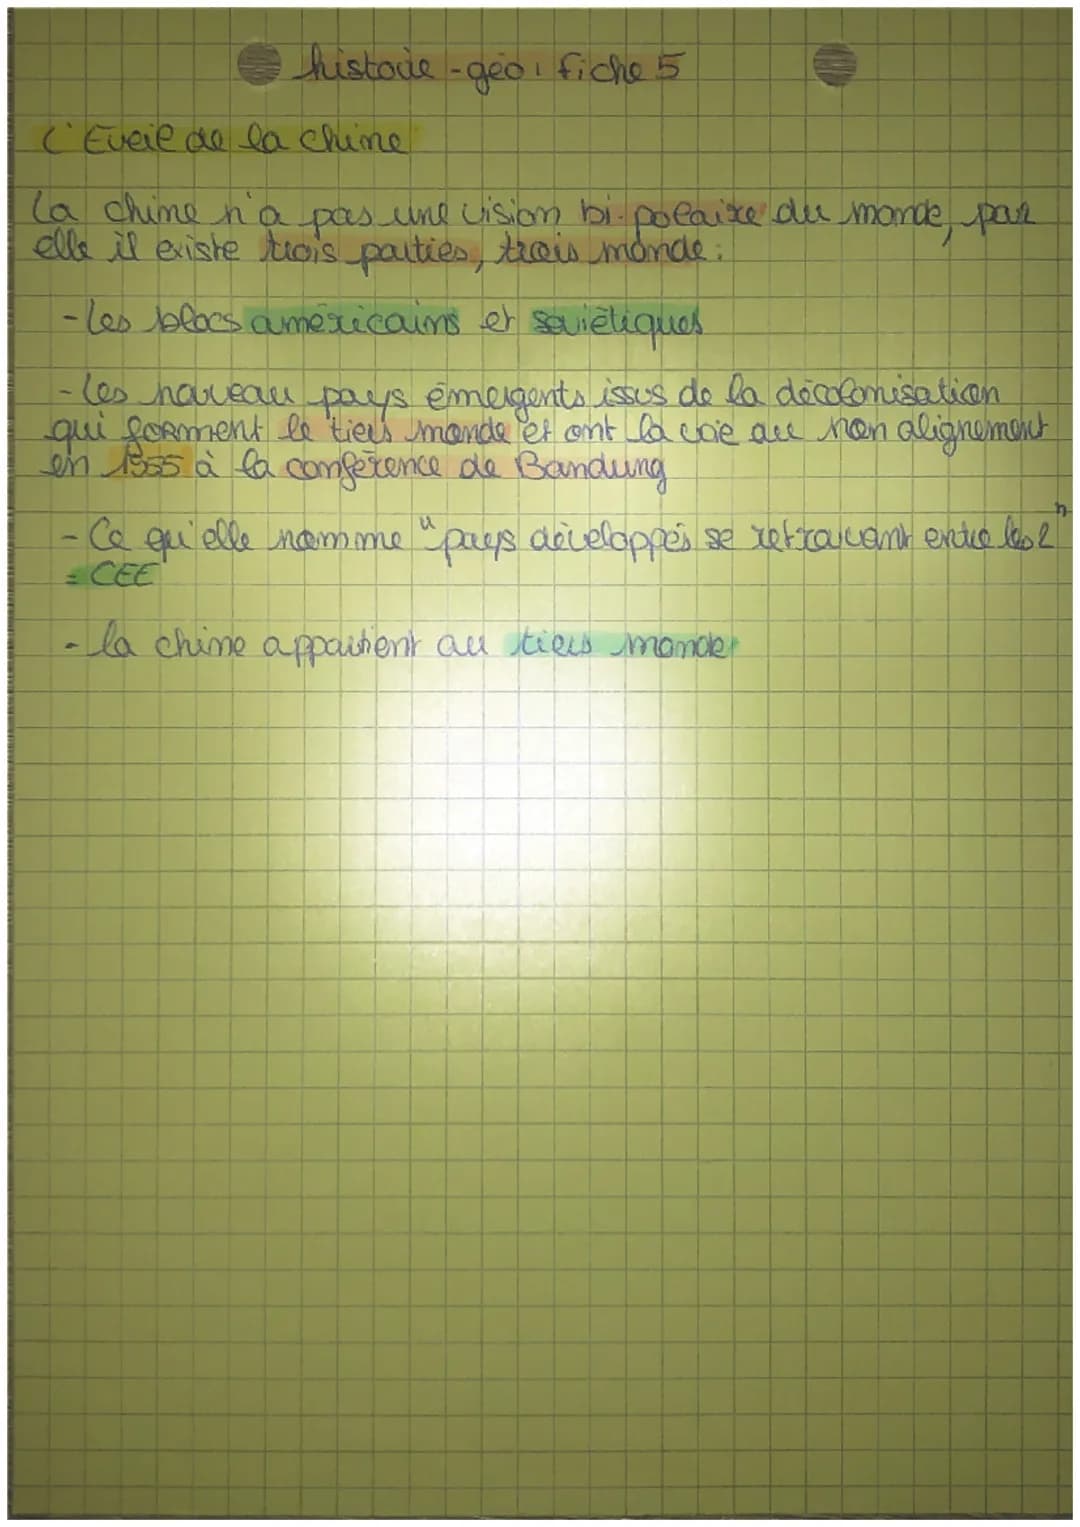 histoire-géo: fiche 5
L'Eveil de la chine
La chine n'a pas une vision bi-polaire du monde, par
elle il existe trois parties, trois monde:
- Les blocs américains et soviétiques
- Les nouveau pays émergents issus de la décolonisation
qui forment le tiers monde et ont la voie au non alignement
en 1955 à la conférence de Bandung
- Ce qu'elle nomme "pays développés se retrouvant entre les 2"
= CEE
- la chine appartient au tiers monde